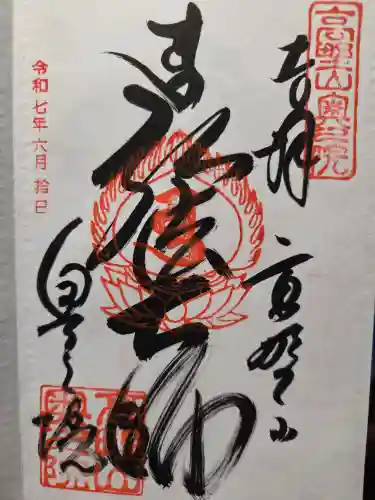 高野山奥之院
奉拝
高野山
弘法大師
令和七年六月拾日
奥之院